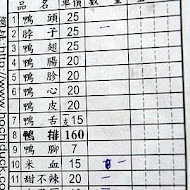 品名 單價 數量
1 鴨頭 25
2 脖子 25
3 鴨翅 25
4 鴨腸 20
5 鴨胗 20
6 鴨心 20
鴨皮 20
7 鴨舌 支15
8 鴨排 160
9 鴨腳 7
10 米血 15
11 甜不辣 20